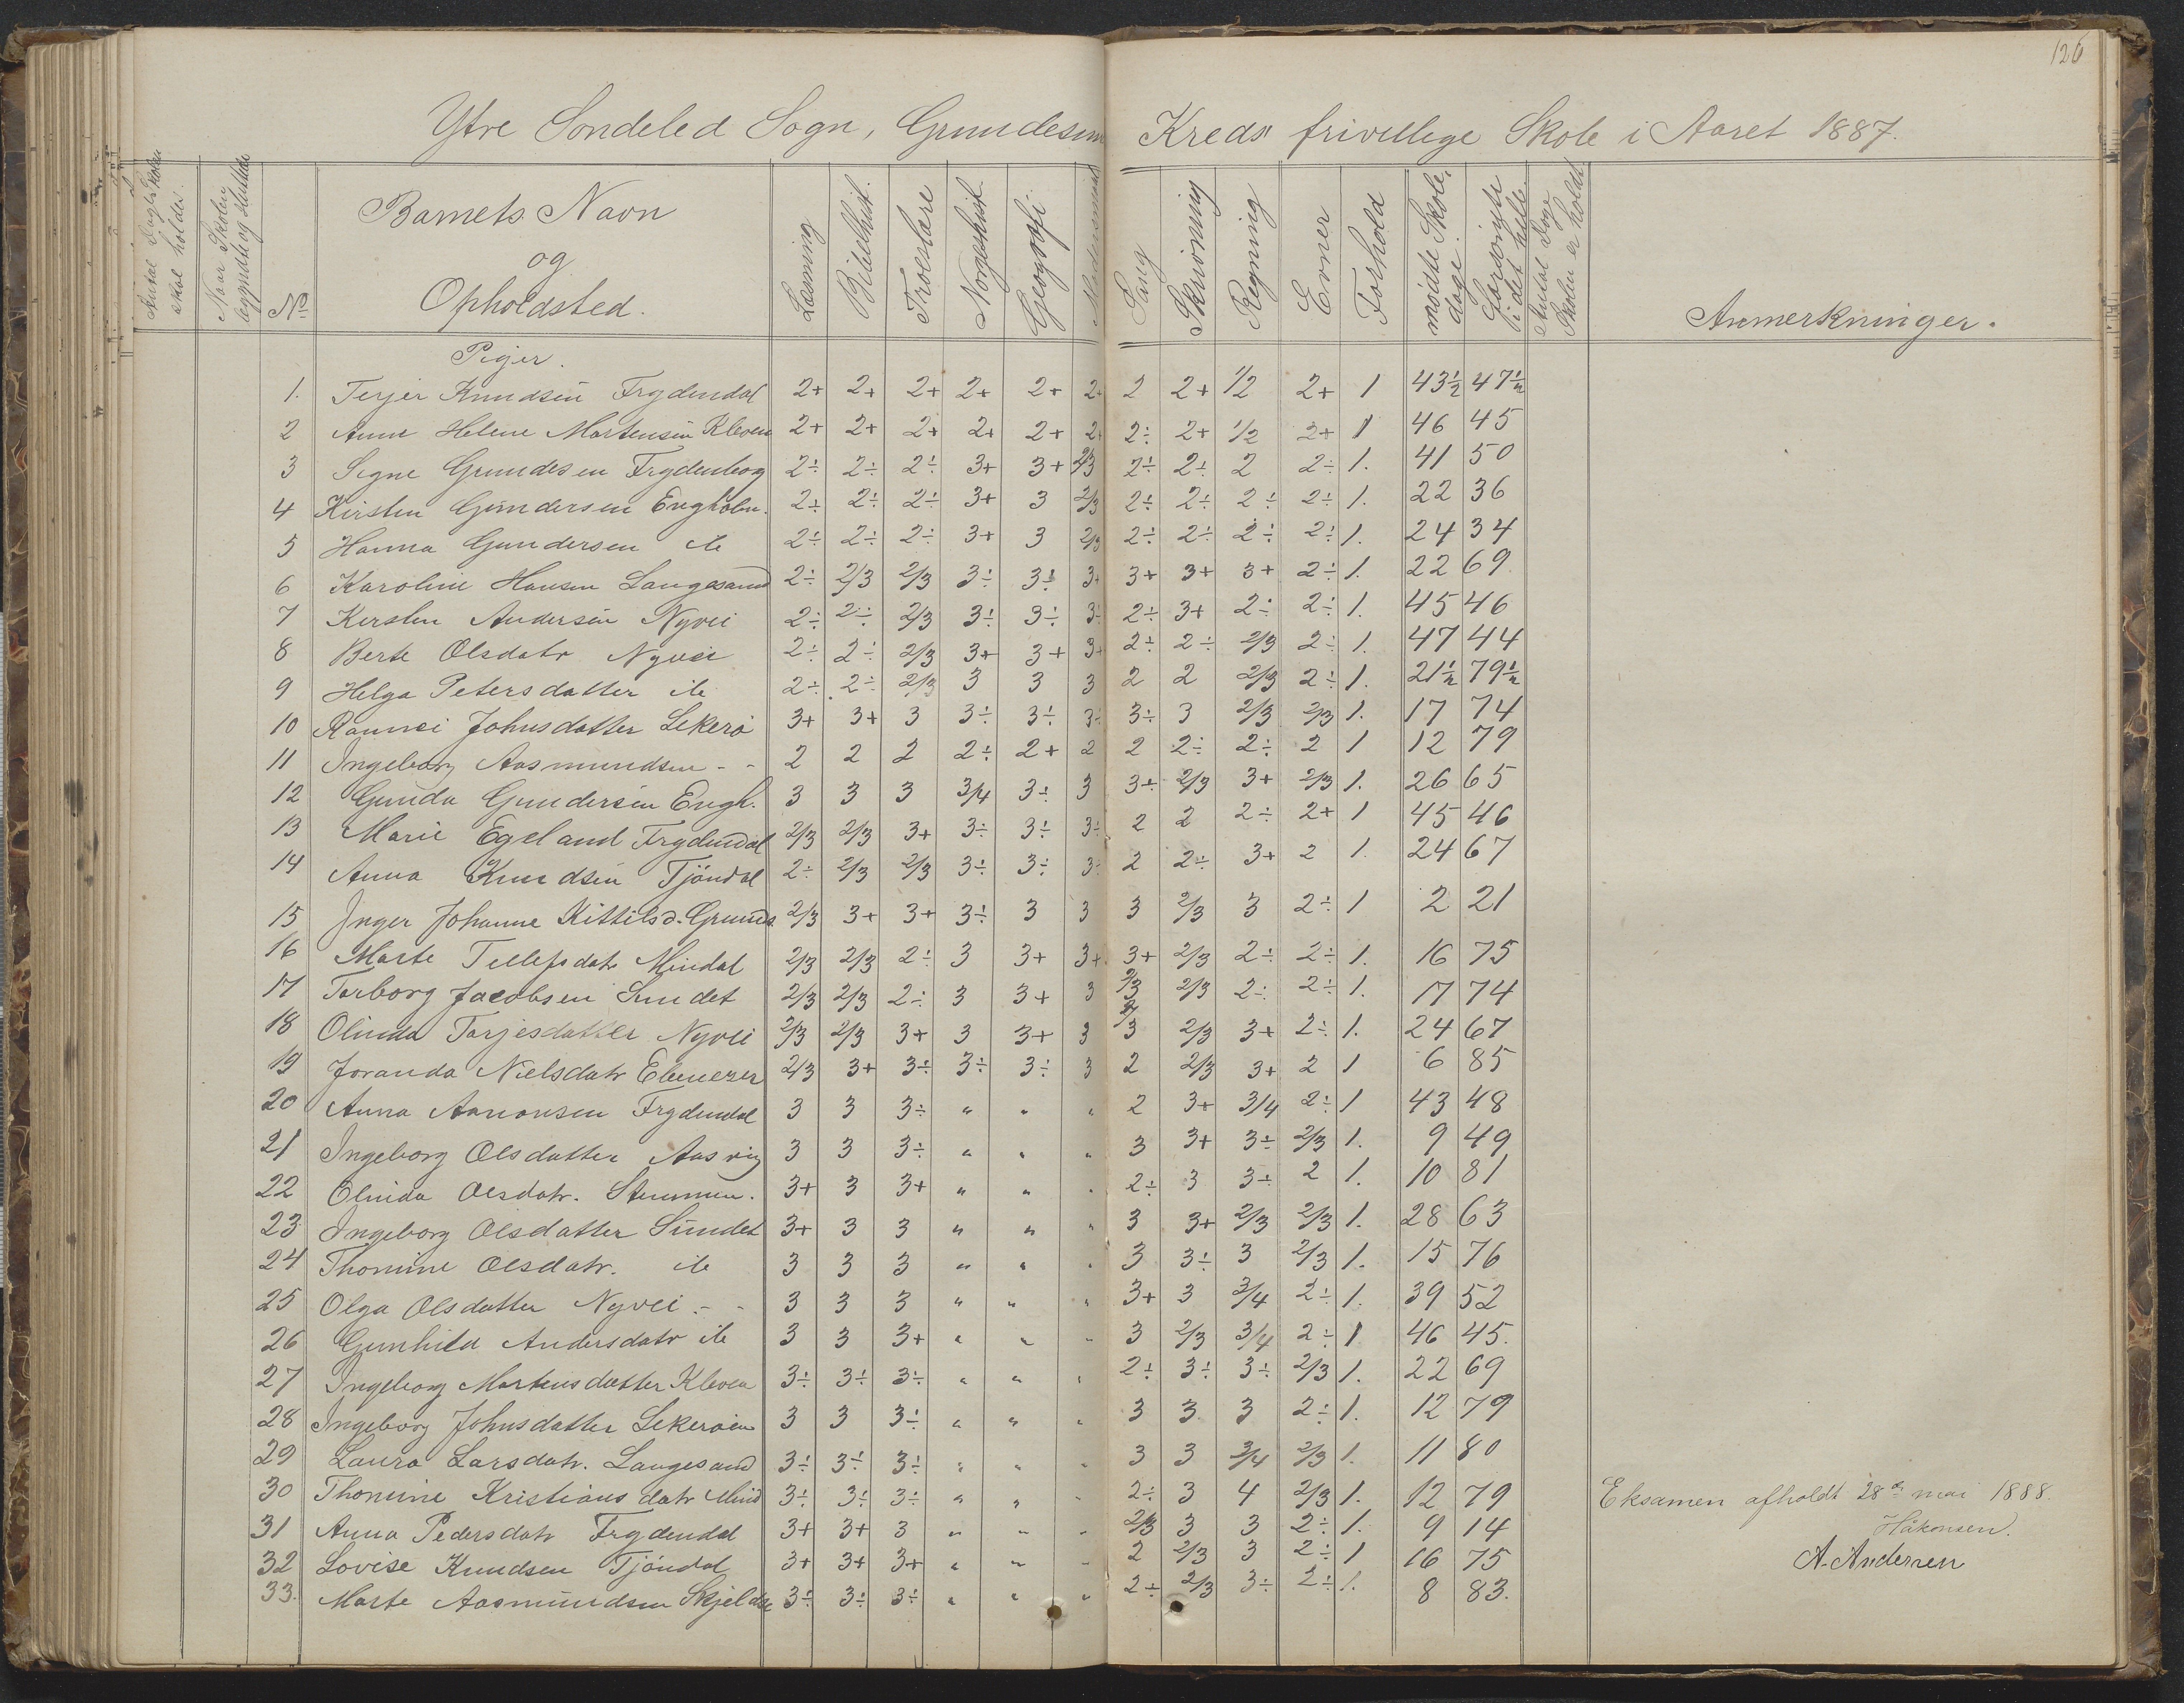 126
Ytre Sondeled Sogn, Grundesun Kreds frivillige Skole i Aaret 1887.
Antal Dage Skolen skal holdes.
Naar Skolen begyndte og sluttede
No
Barnets Navn
og
Opholdsted.
Læsning
Bibelhist.
Troeslære
Norgeshist.
Geografi
Modersmaal
Sang
Skrivning
Regning
Evner
Forhold
mødte Skoledage.
Forsømte i det hele.
Antal Dage Skolen er holdt
Anmerkninger.
Piger.
1. Terjer Knudsen Frydendal 2+ 2+ 2+ 2+ 2+ 2+ 2 2+ 1/2 2+ 1 43½ 47½
2 Anne Helene Martensen Kleven 2+ 2+ 2+ 2+ 2+ 2+ 2÷ 2+ 1/2 2+ 1 46 45
3 Signe Grundesen Frydenborg 2÷ 2÷ 2÷ 3+ 3+ 2/3 2÷ 2÷ 2 2÷ 1. 41 50
4 Kirsten Gundersen Engholm. 2÷ 2÷ 2÷ 3+ 3 2/3 2÷ 2÷ 2÷ 2÷ 1. 22 36
5 Hanna Gundersen do 2÷ 2÷ 2÷ 3+ 3 2/3 2÷ 2÷ 2÷ 2÷ 1. 24 34
6 Karoline Hansen Langesand 2÷ 2/3 2/3 3÷ 3÷ 3+ 3+ 3+ 3+ 2÷ 1. 22 69.
7 Kersten Andersen Nyvei 2÷ 2÷ 2/3 3÷ 3÷ 3÷ 2÷ 3+ 2÷ 2÷ 1. 45 46
8 Berte Olsdatr Nyvei 2÷ 2÷ 2/3 3+ 3+ 3+ 2÷ 2÷ 2/3 2÷ 1. 47 44
9 Helga Petersdatter do 2÷ 2÷ 2/3 3 3 3 2 2 2/3 2÷ 1. 21½ 79½
10 Ranvei Johnsdatter Lekerø 3+ 3+ 3 3÷ 3÷ 3÷ 3÷ 3 2/3 2/3 1. 17 74
11 Ingeborg Aasmundsen - - 2 2 2 2÷ 2+ 2 2 2÷ 2÷ 2 1 12 79
12 Gunda Gundersen Engh. 3 3 3 3/4 3÷ 3 3÷ 2/3 3+ 2/3 1. 26 65
13 Marie Egeland Frydendal 2/3 2/3 3+ 3÷ 3÷ 3÷ 2 2 2÷ 2+ 1 45 46
14 Anna Knudsen Tjøndal 2÷ 2/3 2/3 3÷ 3÷ 3÷ 2 2÷ 3+ 2 1. 24 67
15 Inger Johanne Kittilsd. Grunds. 2/3 3+ 3+ 3÷ 3 3 3 2/3 3 2÷ 1 2 21
16 Marte Tellefsdatr Mindal 2/3 2/3 2÷ 3 3+ 3+ 3+ 2/3 2÷ 2÷ 1. 16 75
17 Torborg Jacobsen Sundet 2/3 2/3 2÷ 3 3+ 3 2/3 2/3 2÷ 2÷ 1. 17 74
18 Olinda Tarjesdatter Nyvei 2/3 2/3 3+ 3 3+ 3 2/3 2/3 3+ 2÷ 1. 24 67
19 Joranda Nielsdatr Ebenezer 2/3 3+ 3÷ 3÷ 3÷ 3 2 2/3 3+ 2 1 6 85
20 Anna Aanonsen Frydendal 3 3 3÷ " " " 2 3+ 3/4 2÷ 1 43 48
21 Ingeborg Olsdatter Aasvig 3 3 3÷ " " " 3 3+ 3÷ 2/3 1. 9 49
22 Olinda Olsdatr. Stemmen. 3+ 3 3+ " " " 2÷ 3 3÷ 2 1. 10 81
23 Ingeborg Olsdatter Sundet 3+ 3 3 " " " 3 3+ 2/3 2/3 1. 28 63
24 Thomine Olsdatr. do 3 3 3 " " " 3 3÷ 3 2/3 1. 15 76
25 Olga Olsdatter Nyvei - - 3 3 3 " " " 3+ 3 3/4 2÷ 1. 39 52
26 Gunhild Andersdatr do 3 3 3+ " " " 3 2/3 3/4 2÷ 1 46 45.
27 Ingeborg Martensdatter Kleven 3÷ 3÷ 3÷ " " " 2÷ 3÷ 3÷ 2/3 1. 22 69
28 Ingeborg Johnsdatter Lekerøen 3 3 3÷ " " " 3 3 3 2÷ 1. 12 79
29 Laura Larsdatr. Langesand 3÷ 3÷ 3÷ " " " 3 3 3/4 2/3 1. 11 80
30 Thomine Kristiansdatr Mind 3÷ 3÷ 3÷ " " " 2÷ 3 4 2/3 1. 12 79 Eksamen afholdt 28de mai 1888.
31 Anna Pedersdatr Frydendal 3+ 3+ 3 " " " 2/3 3 3 2÷ 1. 9 14 Håkonsen.
32 Lovise Knudsen Tjøndal 3+ 3+ 3+ " " " 2 2/3 3 2÷ 1 16 75 A. Andersen
33. Marte Aasmundsen Skjeldsø 3÷ 3÷ 3÷ " " " 2÷ 2/3 3÷ 2÷ 1. 8 83.